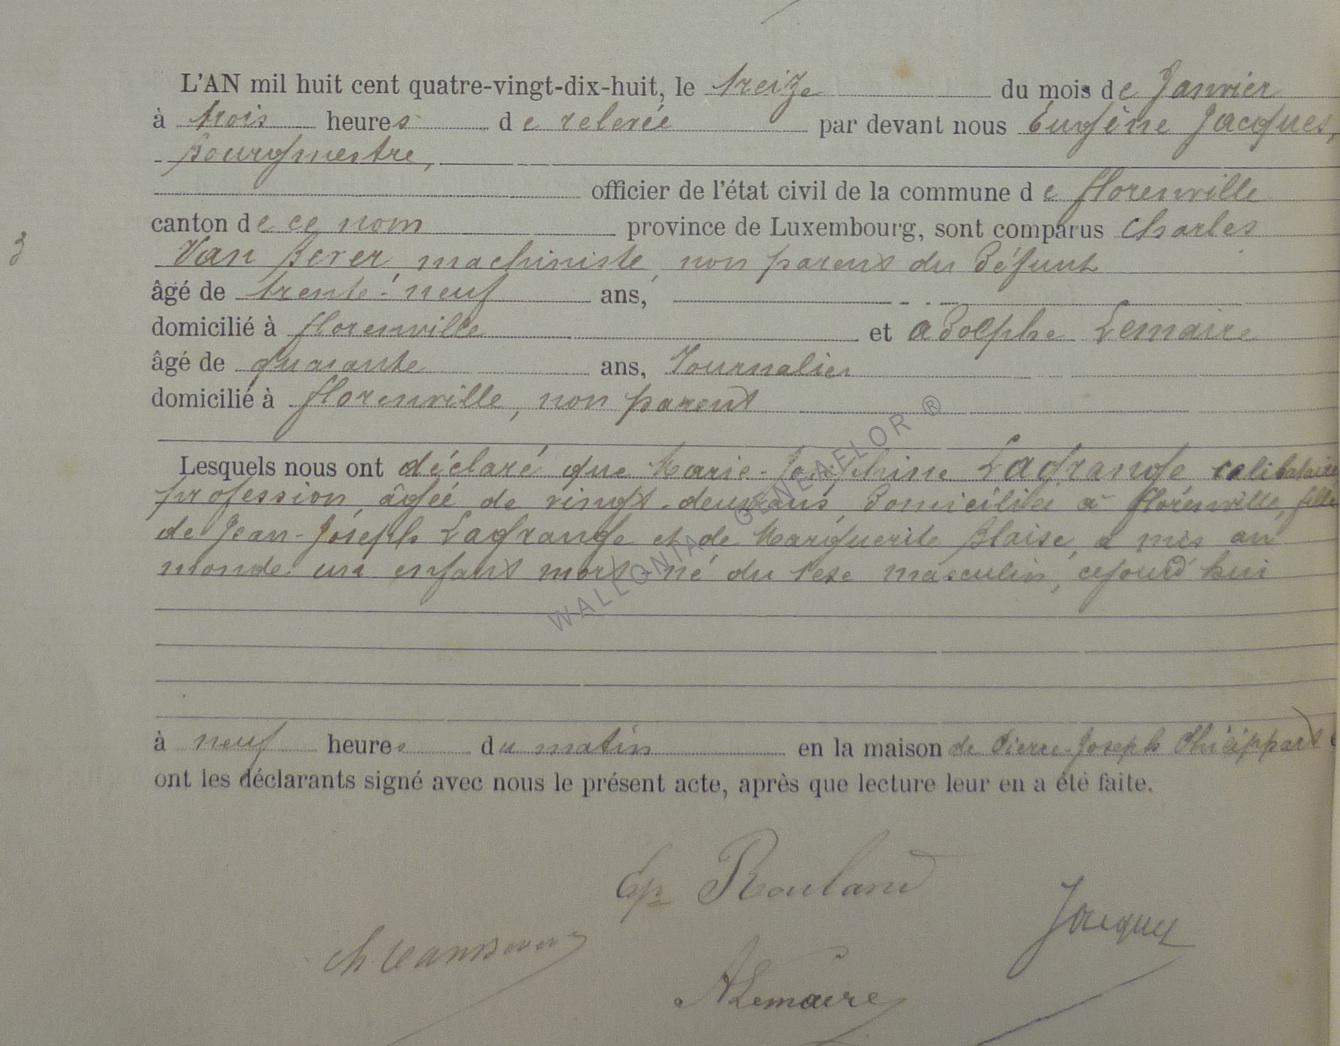 L'AN mil huit cent quatre-vingt-dix-huit, le treize du mois de Janvier
à trois heures de relevée par devant nous Eugène Jacques,
Bourgmestre,
officier de l'état civil de la commune de florenville
canton de ce nom province de Luxembourg, sont comparus Charles
3
Van Bever, machiniste, non parent du défunt
âgé de trente-neuf ans,
domicilié à florenville et adolphe Lemaire
âgé de quarante ans, Journalier
domicilié à florenville, non parent
Lesquels nous ont déclaré que Marie-Joséphine Lagrange celibataire
profession, âgée de vingt-deux ans, domiciliée à florenville, fille
de Jean-Joseph Lagrange et de Marguerite Blaise, a mis au
monde un enfant mort-né du sexe masculin, cejourd'hui
WALLONIA GENEAFLOR ®
à neuf heures du matin en la maison de Pierre-Joseph Philippart
ont les déclarants signé avec nous le présent acte, après que lecture leur en a été faite.
Rouland
Jacques
Ch. Vanbever
ALemaire